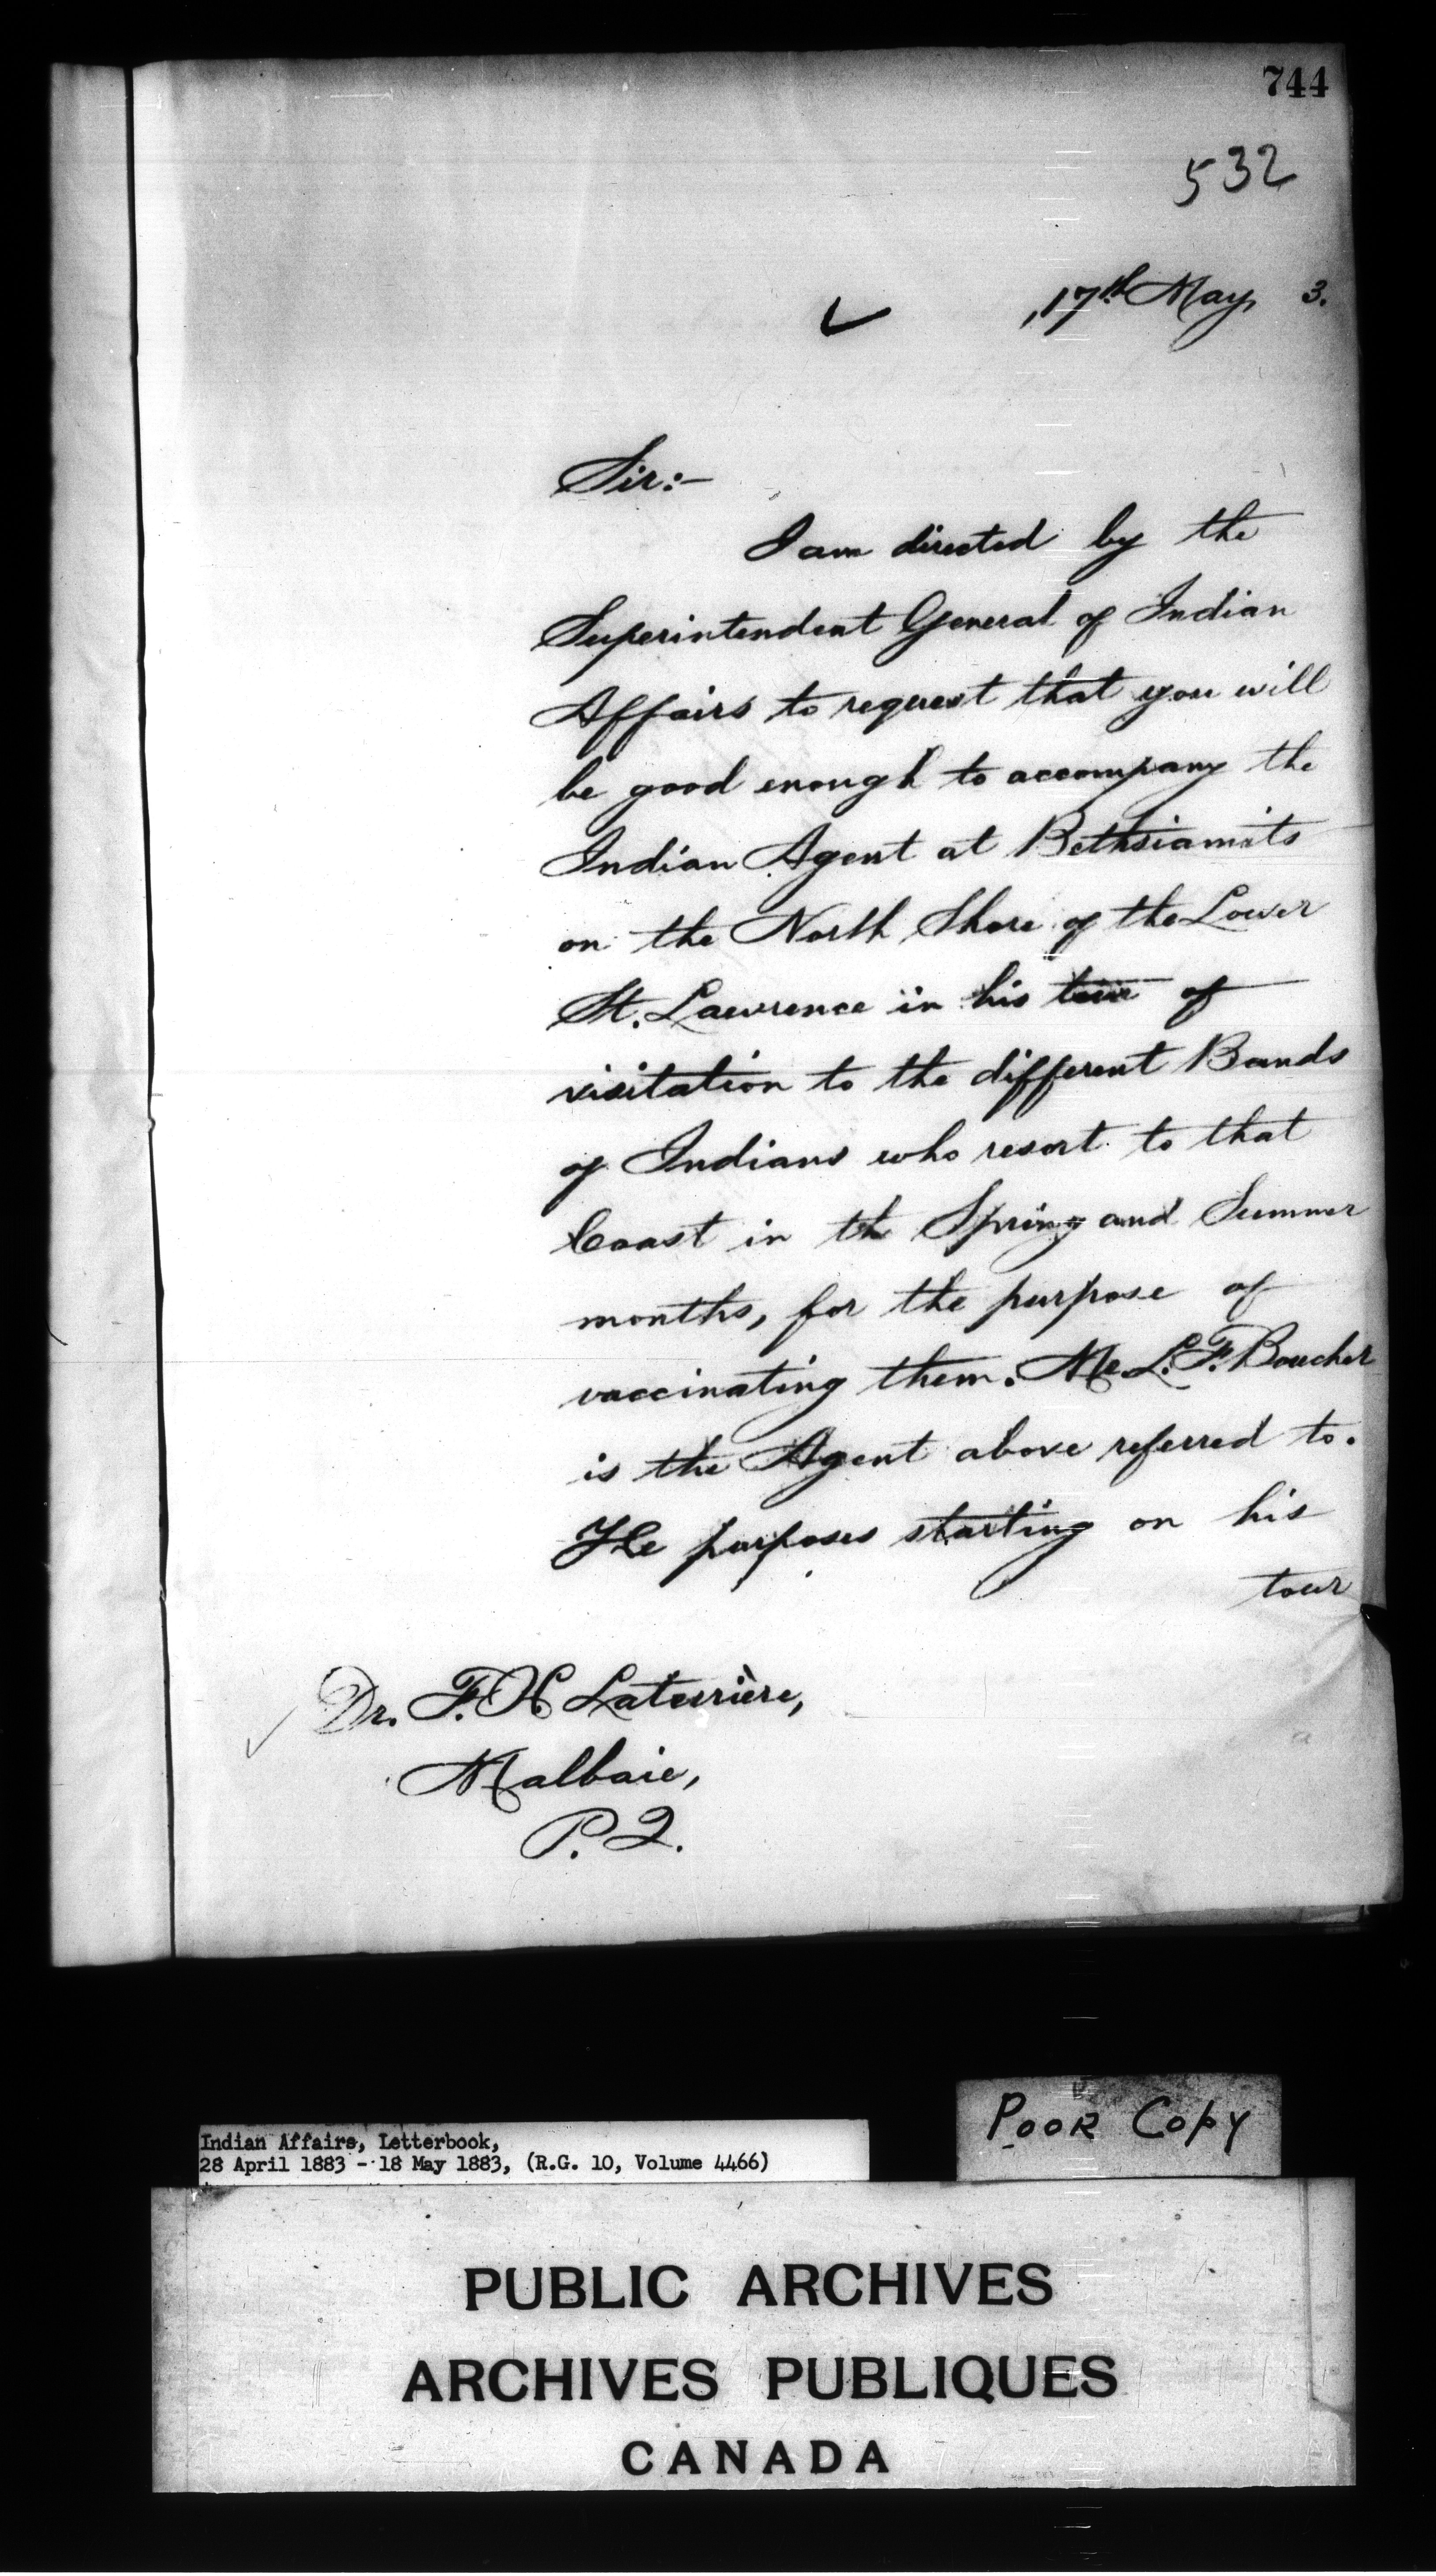 744
532
17th May, 3.
Sir:-
I am directed by the
Superintendent General of Indian
Affairs to request that you will
be good enough to accompany the
Indian Agent at Bethsiamits
on the North Shore of the Lower
St. Lawrence in his tour of
visitation to the different Bands
of Indians who resort to that
Coast in the Spring and Summer
months, for the purpose of
vaccinating them. Mr L. F. Boucher
is the Agent above referred to.
He purposes starting on his
tour
Dr. F. H. Laterrière,
Malbaie,
P. Q.
Poor Copy
Indian Affairs, Letterbook,
28 April 1883 - 18 May 1883, (R.G. 10, Volume 4466)
PUBLIC ARCHIVES
ARCHIVES PUBLIQUES
CANADA